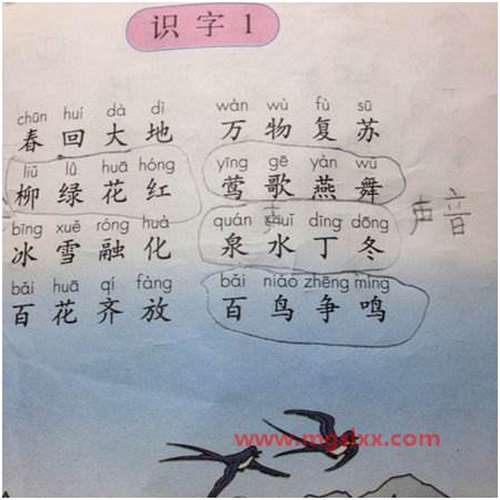 识字1
chūn huí dà dì wàn wù fù sū
春回大地 万物复苏
liǔ lǜ huā hóng yīng gē yàn wǔ
柳绿花红 莺歌燕舞
bīng xuě róng huà quán shuǐ dīng dōng
冰雪融化 泉水丁冬
声音
bǎi huā qí fàng bǎi niǎo zhēng míng
百花齐放 百鸟争鸣
www.mgzlxx.com